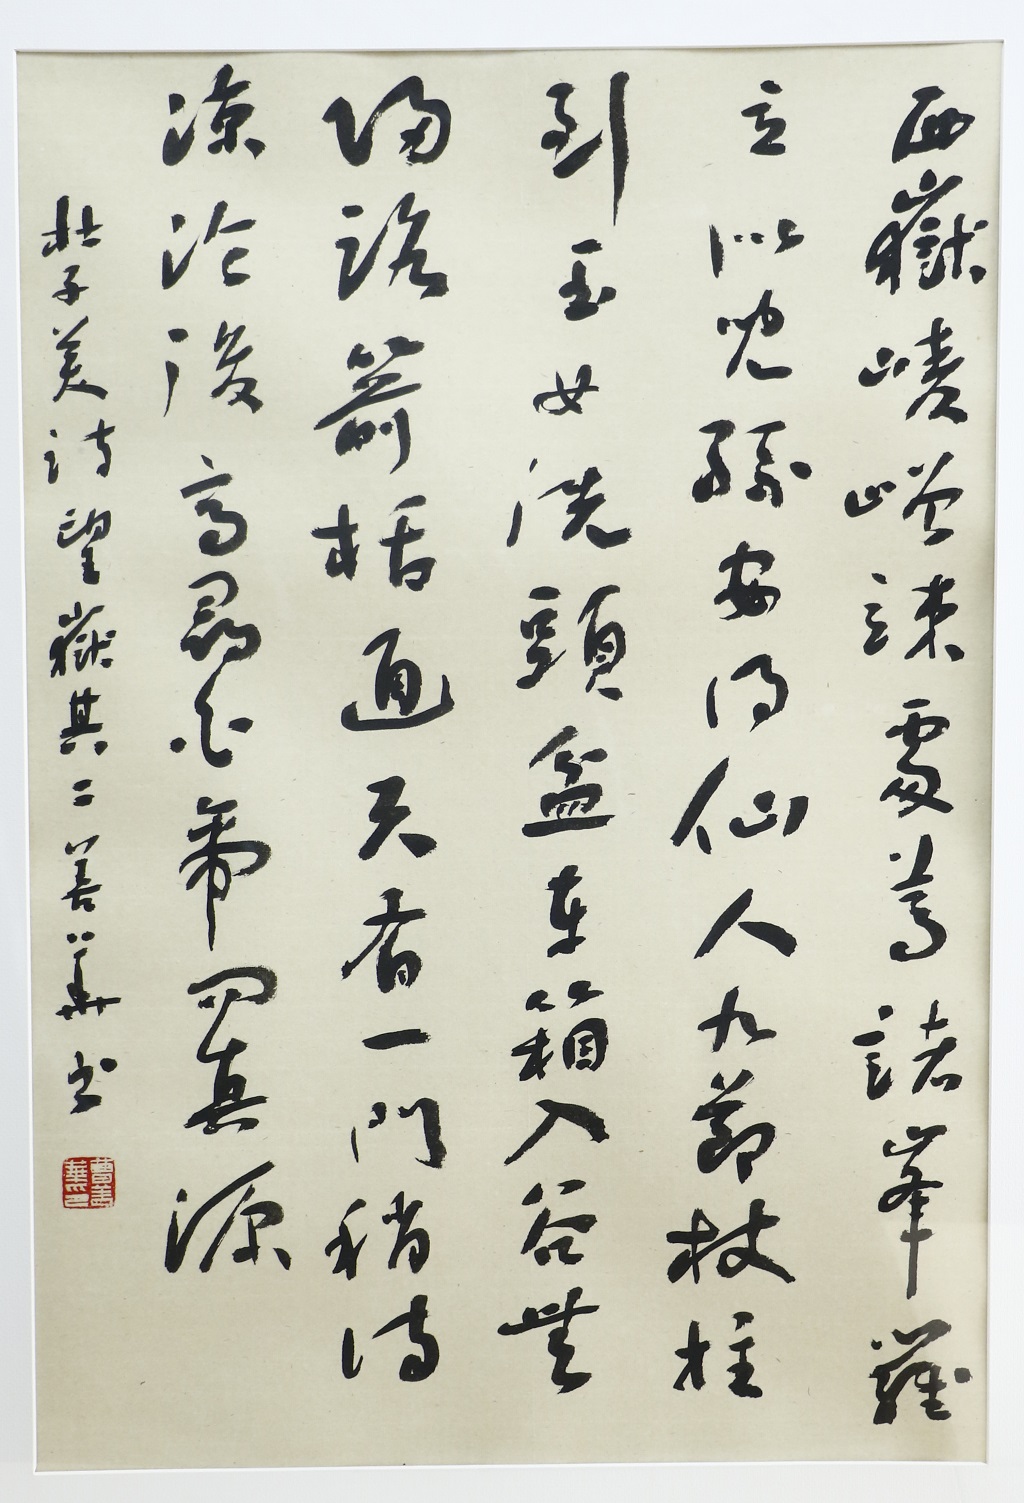 西嶽崚嶒竦處尊諸峯羅
立似兒孫安得仙人九節杖拄
到玉女洗頭盆車箱入谷無
歸路箭栝通天有一門稍待
涼冷後高尋白帝問真源
杜子美詩望嶽其二善華書
曹善華印